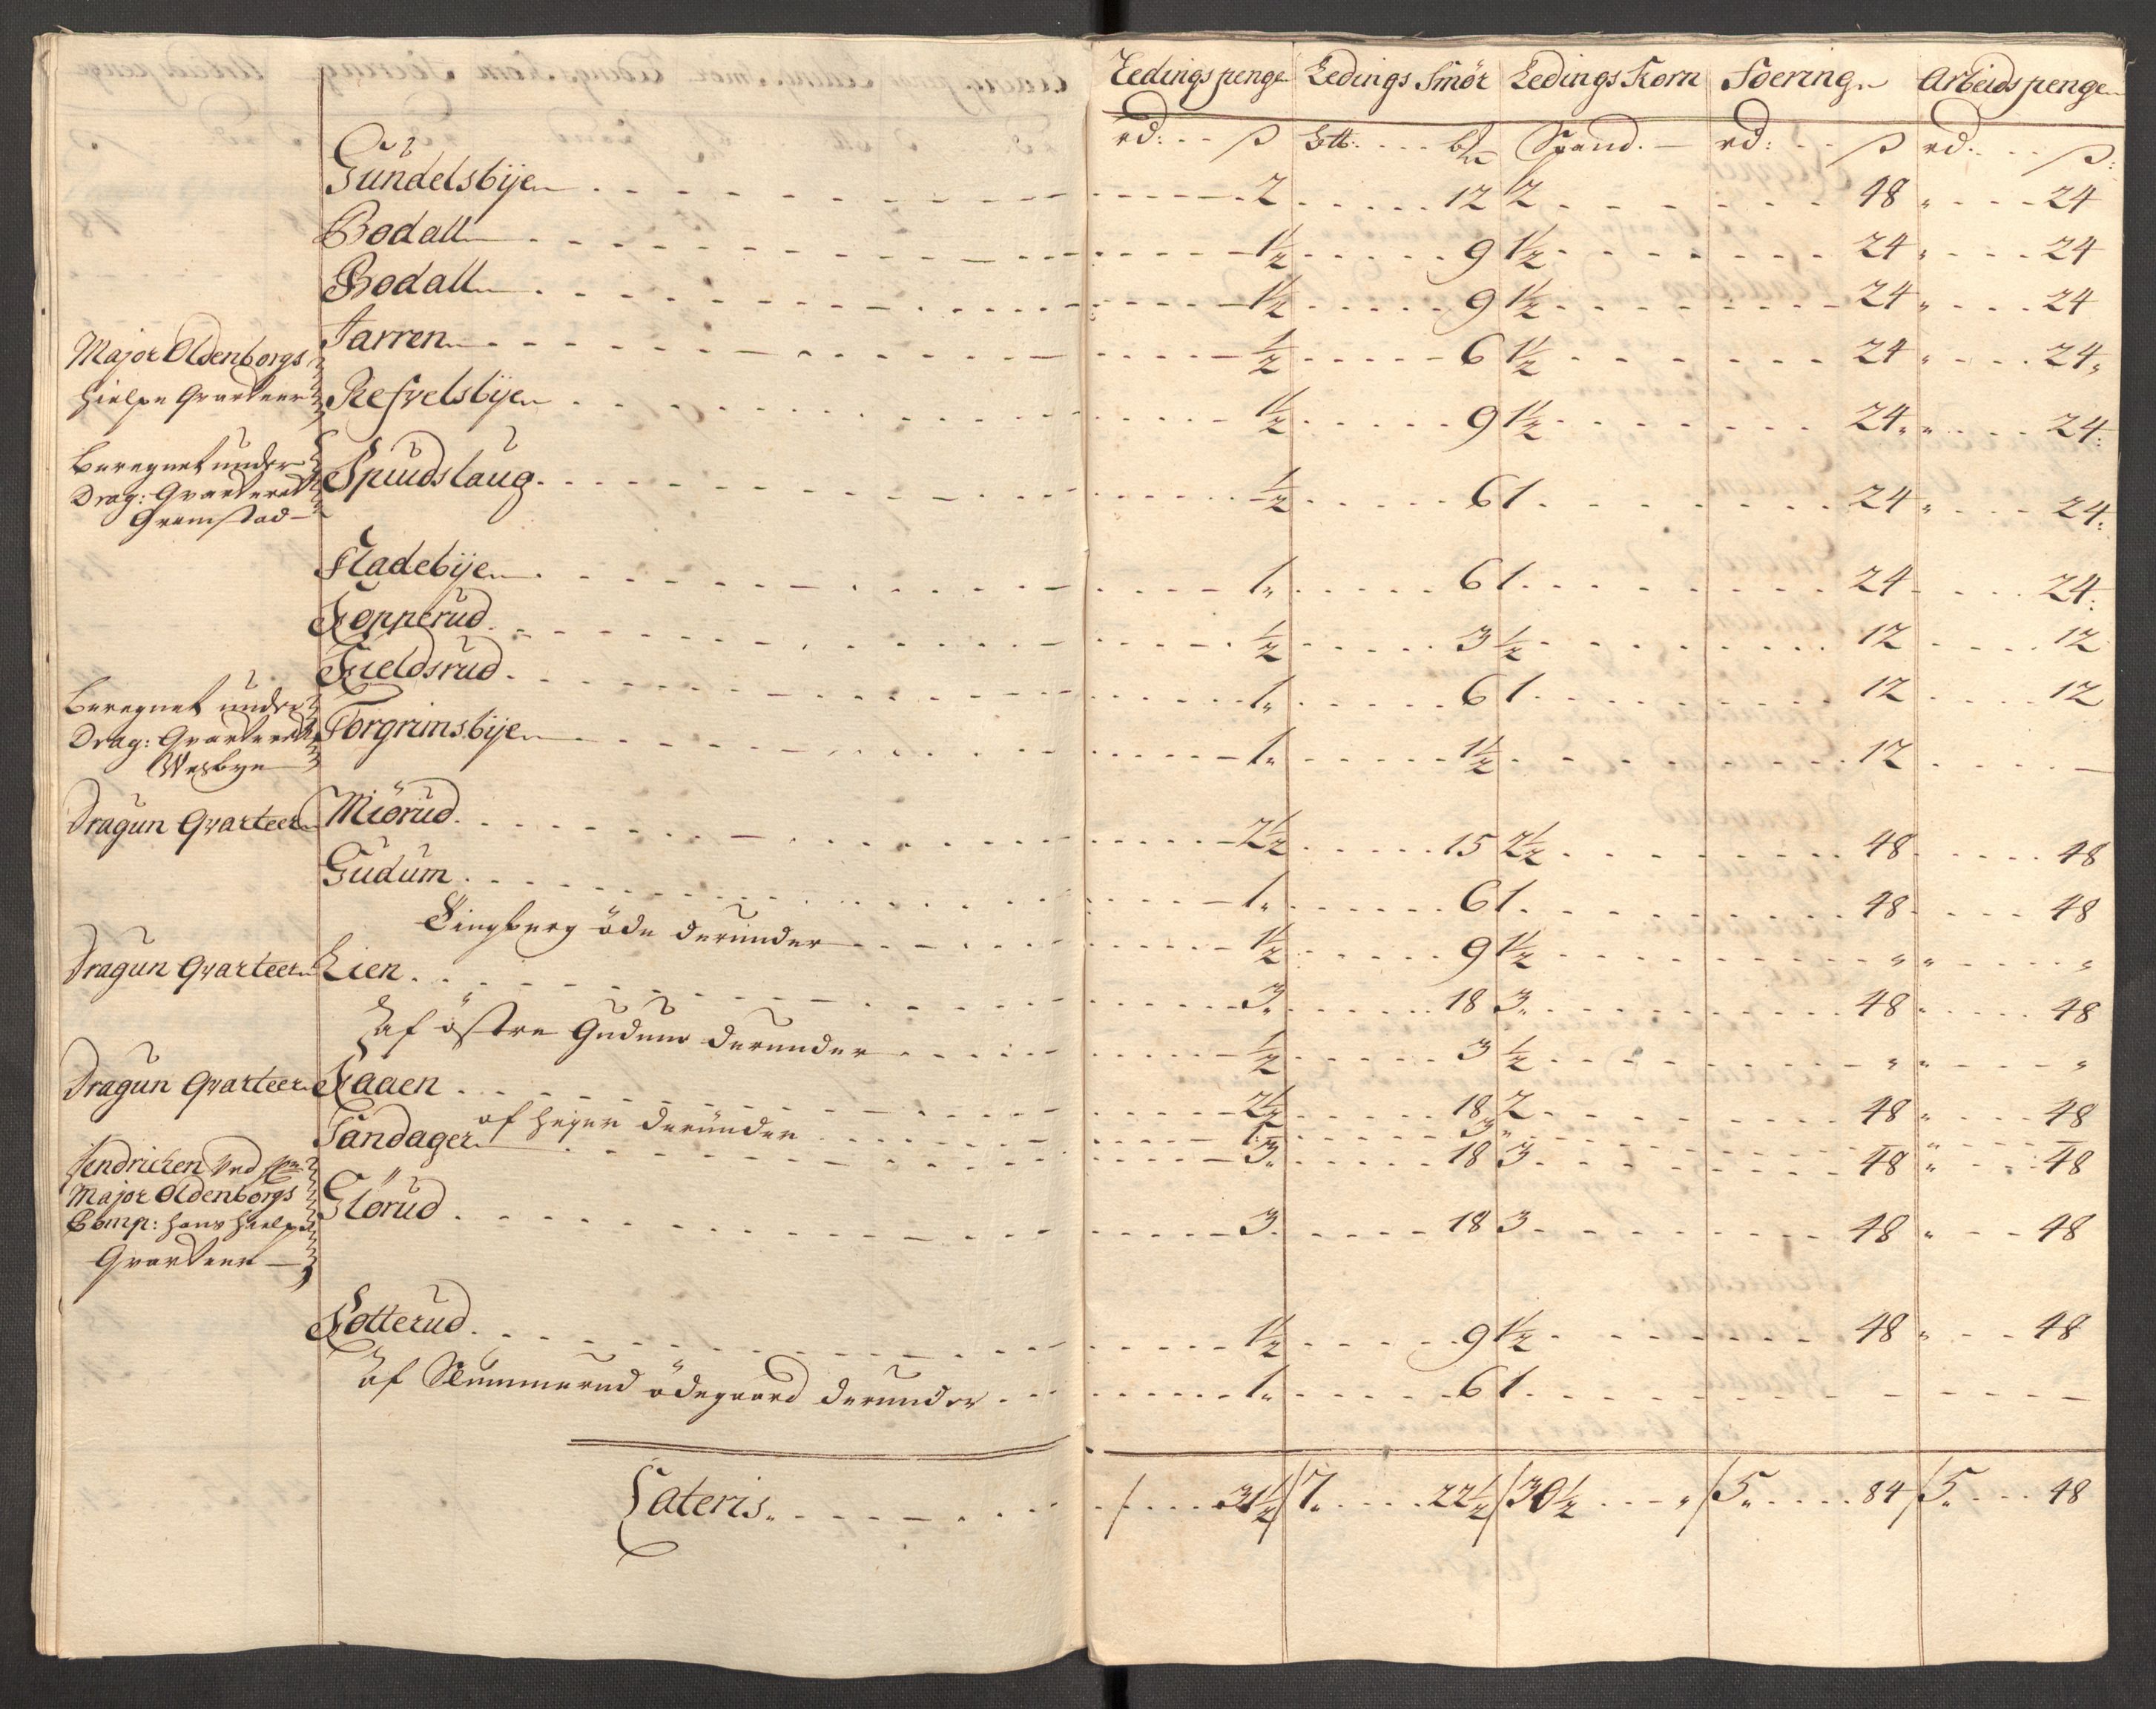 Ledings penge Ledings Smör Ledings Korn Foering Arbeids penge
rd: ß Ltt: Spand. rd: ß rd. ß:
Gundelsbÿe 2 12 1/2 48 " 24
Bodall 1 1/2 9 1 1/2 24 " 24
Bodall 1 1/2 9 1 1/2 24 " 24
Jarren 1/2 6 1 1/2 24 " 24
Major Oldenborgs
Hielpe Qvarteer Refvelsbÿe 1 1/2 9 1 1/2 24 " 24
Beregnet under
Drag: Qvarteret
Gremstad
Spudslaug 1/2 6 1 24 " 24
Fladebÿe 1 " 6 1 24 24
Kopperud 1/2 3 1/2 12 12
Kieldsrud 1 " 6 1 12 12
Beregnet under
Drag: Qvarteret
Wesbye
Torgrimsbÿe 1 " 1 1/2 12 —
Dragun Qvarteer Miörud 2 1/2 15 2 1/2 48 48
Gudum 1 " 6 1 48 48
Lingberg öde derunder 1 1/2 9 1 1/2 " " "
Dragun Qvarteer Lien 3 " 18 3 " 48 " 48
af östre Gudum derunder 1/2 3 1/2 " " "
Dragun Qvarteer Kaaen 2 1/2 18 2 48 " 48
af Heyer derunder
Sandager 3 " 18 3 48 " 48
Fendrichen Ved
Major Oldenborgs
Comp: hans Hielpe
Qvarteer
Glörud 3 18 3 48 " 48
Kotterud 1 1/2 9 1 1/2 48 " 48
af Slummerud ödegaard derunder 1 " 6 1 — —
Lateris. 31 1/2 7 " 22 1/2 30 1/2 " 5 " 84 5 " 48